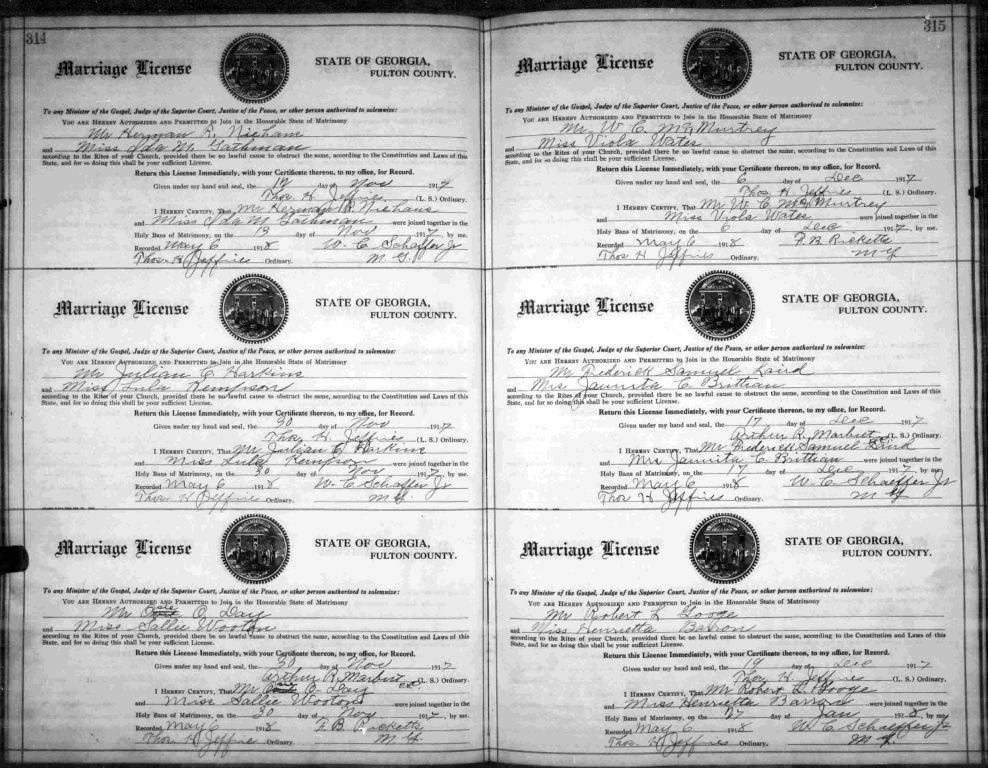 314
Marriage License
STATE OF GEORGIA,
FULTON COUNTY.
To any Minister of the Gospel, Judge of the Superior Court, Justice of the Peace, or other person authorized to solemnize:
YOU ARE HEREBY AUTHORIZED AND PERMITTED to Join in the Honorable State of Matrimony
Mr Herman R. Niehaus
and Miss Ida M. Gathman
according to the Rites of your Church, provided there be no lawful cause to obstruct the same, according to the Constitution and Laws of this
State, and for so doing this shall be your sufficient License.
Return this License Immediately, with your Certificate thereon, to my office, for Record.
Given under my hand and seal, the 17 day of Nov 1917
Thos. H. Jeffries (L. S.) Ordinary.
I HEREBY CERTIFY, That Mr Herman R. Niehaus
and Miss Ida M. Gathman were joined together in the
Holy Bans of Matrimony, on the 18 day of Nov 1917, by me.
Recorded May 6 1918 W. C. Schaffer Jr
Thos. H Jeffries Ordinary. M. G.
Marriage License
STATE OF GEORGIA,
FULTON COUNTY.
To any Minister of the Gospel, Judge of the Superior Court, Justice of the Peace, or other person authorized to solemnize:
YOU ARE HEREBY AUTHORIZED AND PERMITTED to Join in the Honorable State of Matrimony
Mr Julian C. Harkins
and Miss Lula Kempson
according to the Rites of your Church, provided there be no lawful cause to obstruct the same, according to the Constitution and Laws of this
State, and for so doing this shall be your sufficient License.
Return this License Immediately, with your Certificate thereon, to my office, for Record.
Given under my hand and seal, the 30 day of Nov 1917
Thos. H. Jeffries (L. S.) Ordinary.
I HEREBY CERTIFY, That Mr Julian C. Harkins
and Miss Lula Kempson were joined together in the
Holy Bans of Matrimony, on the 30 day of Nov 1917, by me.
Recorded May 6 1918 W. C. Schaffer Jr
Thos H Jeffries Ordinary. M. G.
Marriage License
STATE OF GEORGIA,
FULTON COUNTY.
To any Minister of the Gospel, Judge of the Superior Court, Justice of the Peace, or other person authorized to solemnize:
YOU ARE HEREBY AUTHORIZED AND PERMITTED to Join in the Honorable State of Matrimony
Mr O. Day
and Miss Sallie Wooton
according to the Rites of your Church, provided there be no lawful cause to obstruct the same, according to the Constitution and Laws of this
State, and for so doing this shall be your sufficient License.
Return this License Immediately, with your Certificate thereon, to my office, for Record.
Given under my hand and seal, the 30 day of Nov 1917
Arthur R. Marbut (L. S.) Ordinary.
I HEREBY CERTIFY, That Mr O. Day
and Miss Sallie Wooton were joined together in the
Holy Bans of Matrimony, on the 30 day of Nov 1917, by me.
Recorded May 6 1918 F. B. Ricketts
Thos H Jeffries Ordinary. M G
315
Marriage License
STATE OF GEORGIA,
FULTON COUNTY.
To any Minister of the Gospel, Judge of the Superior Court, Justice of the Peace, or other person authorized to solemnize:
YOU ARE HEREBY AUTHORIZED AND PERMITTED to Join in the Honorable State of Matrimony
Mr. W. C. McMurtrey
and Miss Viola Wates
according to the Rites of your Church, provided there be no lawful cause to obstruct the same, according to the Constitution and Laws of this
State, and for so doing this shall be your sufficient License.
Return this License Immediately, with your Certificate thereon, to my office, for Record.
Given under my hand and seal, the 6 day of Dec 1917
Thos H Jeffries (L. S.) Ordinary.
I HEREBY CERTIFY, That Mr W. C McMurtrey
and Miss Viola Wates were joined together in the
Holy Bans of Matrimony, on the 6 day of Dec 1917, by me.
Recorded May 6 1918 F. B. Ricketts
Thos H Jeffries Ordinary. M G
Marriage License
STATE OF GEORGIA,
FULTON COUNTY.
To any Minister of the Gospel, Judge of the Superior Court, Justice of the Peace, or other person authorized to solemnize:
YOU ARE HEREBY AUTHORIZED AND PERMITTED to Join in the Honorable State of Matrimony
Mr Frederick Samuel Laird
and Mrs Jaunita C. Brittian
according to the Rites of your Church, provided there be no lawful cause to obstruct the same, according to the Constitution and Laws of this
State, and for so doing this shall be your sufficient License.
Return this License Immediately, with your Certificate thereon, to my office, for Record.
Given under my hand and seal, the 17 day of Dec 1917
Arthur R. Marbut (L. S.) Ordinary.
I HEREBY CERTIFY, That Mr Frederick Samuel Laird
and Mrs Jaunita C Brittian were joined together in the
Holy Bans of Matrimony, on the 17 day of Dec 1917, by me
Recorded May 6 1918 W. C. Schaeffer Jr
Thos H Jeffries Ordinary. M G
Marriage License
STATE OF GEORGIA,
FULTON COUNTY.
To any Minister of the Gospel, Judge of the Superior Court, Justice of the Peace, or other person authorized to solemnize:
YOU ARE HEREBY AUTHORIZED AND PERMITTED to Join in the Honorable State of Matrimony
Mr Robert L Googe
and Miss Henrietta Barron
according to the Rites of your Church, provided there be no lawful cause to obstruct the same, according to the Constitution and Laws of this
State, and for so doing this shall be your sufficient License.
Return this License Immediately, with your Certificate thereon, to my office, for Record.
Given under my hand and seal, the 19 day of Dec 1917
Thos H. Jeffries (L. S.) Ordinary.
I HEREBY CERTIFY, That Mr Robert L. Googe
and Miss Henrietta Barron were joined together in the
Holy Bans of Matrimony, on the 27 day of Jan 1918, by me.
Recorded May 6 1918 W. C Schaeffer Jr
Thos. H Jeffries Ordinary. M G